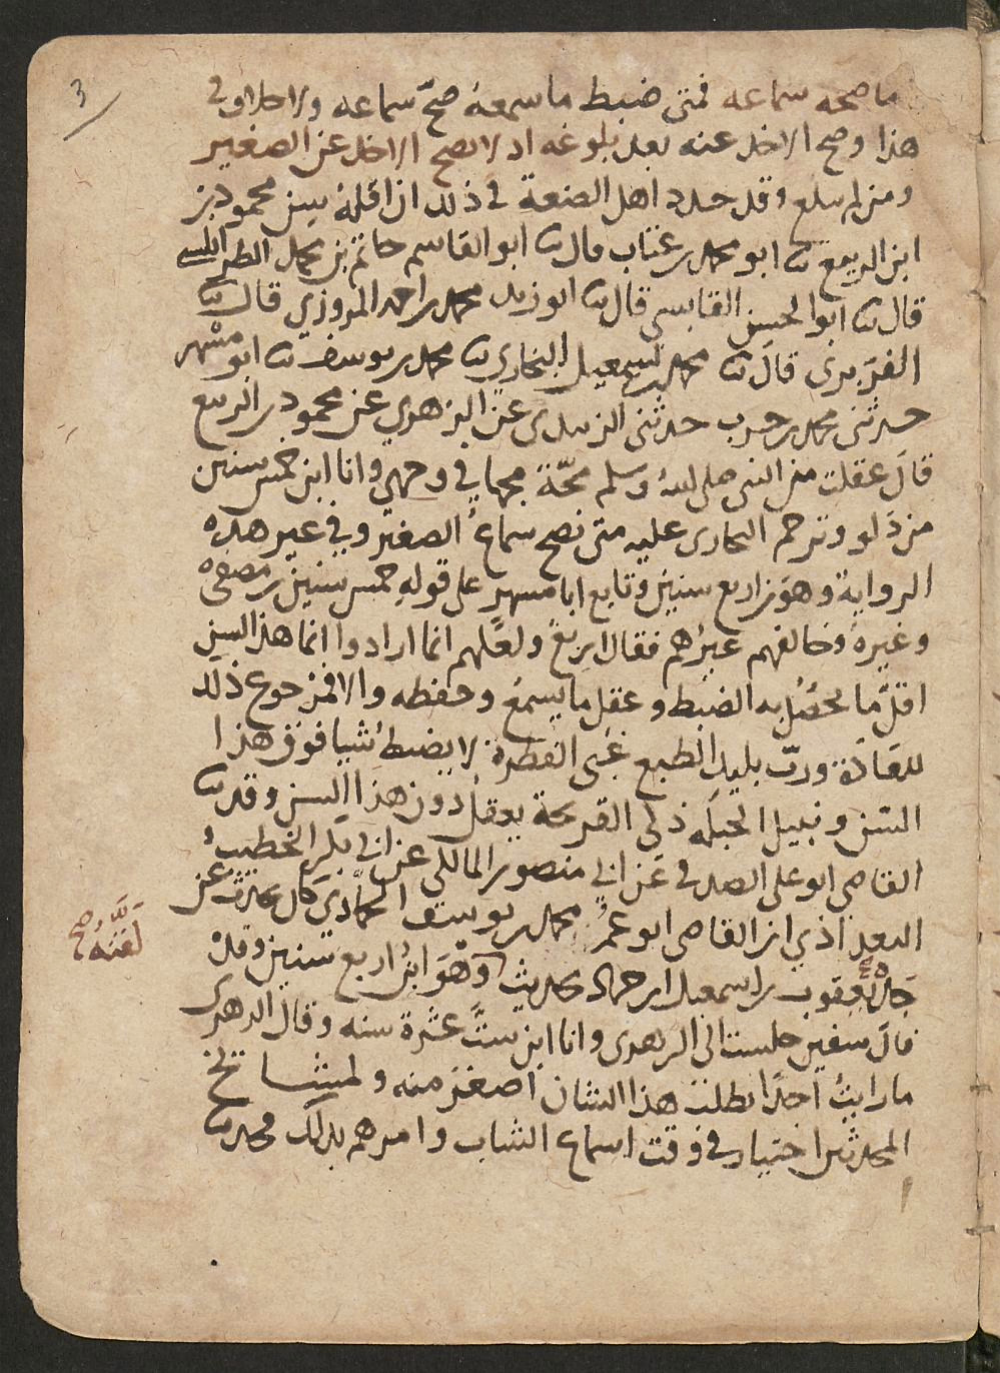 3
ما صحة سماعه فمتى ضبط ما سمعه صح سماعه ولا خلاف في
هذا وصح الاخذ عنه بعد بلوغه اذ لا يصح الاخذ عن الصغير
ومن لم يبلغ وقد حدد اهل الصنعة في ذلك ان اقله سن محمود بن
ابن الربيع نا ابو محمد بن عتاب قال نا ابو القاسم حاتم بن محمد الطرابلسي
قال نا ابو الحسن القابسي قال نا ابو زيد محمد بن احمد المروزي قال نا
الفربري قال نا محمد بن اسمعيل البخاري نا محمد بن يوسف نا ابو مسهر
حدثني محمد بن حرب حدثني الزبيدي عن الزهري عن محمود بن الربيع
قال عقلت من النبي صلى الله وسلم مجة مجها في وجهي وانا ابن خمس سنين
من دلو وترجم البخاري عليه متى يصح سماع الصغير وفي غير هذه
الرواية وهو بن اربع سنين وتابع ابا مسهر على قوله خمس سنين بن مصفى
وغيره وخالفهم غيرهم فقال اربع ولعلهم انما ارادوا انما هذا السن
اقل ما يحصل به الضبط وعقل ما يسمع وحفظه والا فمرجوع ذلك
للعادة ورب بليد الطبع غبي الفطرة لا يضبط شيا فوق هذا
السن ونبيل الجبلة ذكي القريحة يعقل دون هذا السن وقد نا
القاضي ابو علي الصدفي عن ابي منصور المالكي عن ابي بكر الخطيب
البغداذي ان القاضي ابو عمر محمد بن يوسف الحمادي كان يحدث عن
جده يعقوب بن اسمعيل ابن حماد بحديث وهو ابن اربع سنين وقد
لقنه صح
قال سفين جلست الى الزهري وانا ابن ست عشرة سنه وقال الزهري
ما رايت احدا يطلب هذا الشان اصغر منه ولمشايخ
المحدثين اختيار في وقت اسماع الشاب وامرهم بذلك فحدثنا